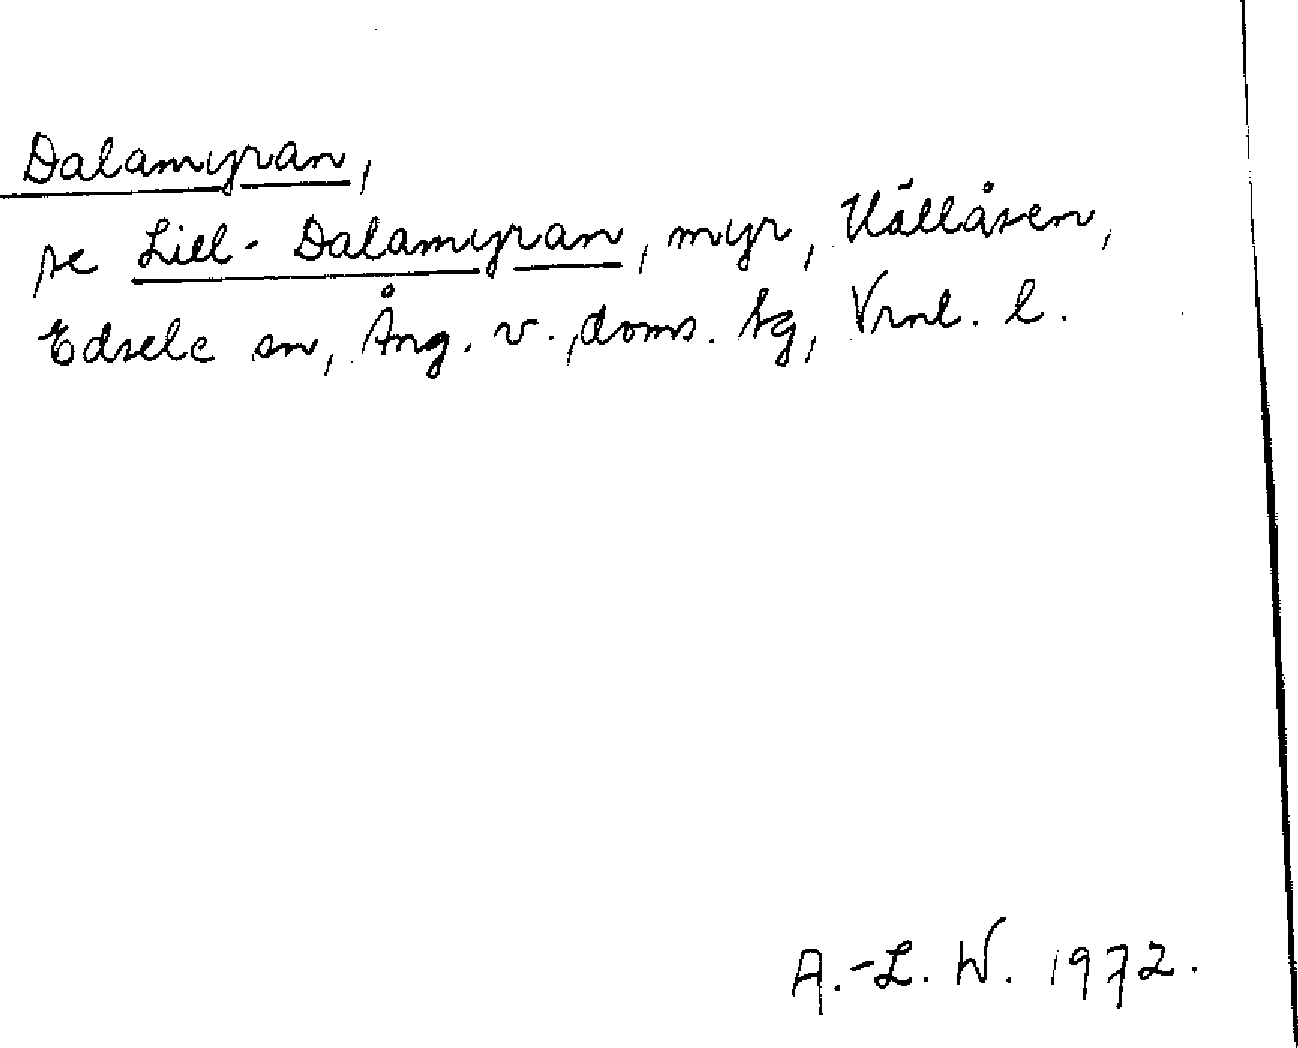 Dalamyran,
se Lill-Dalamyran, myr, Källåsen,
Edsele sn, Ång. v. doms. tg, Vrnl. l.
A.-L. W. 1972.